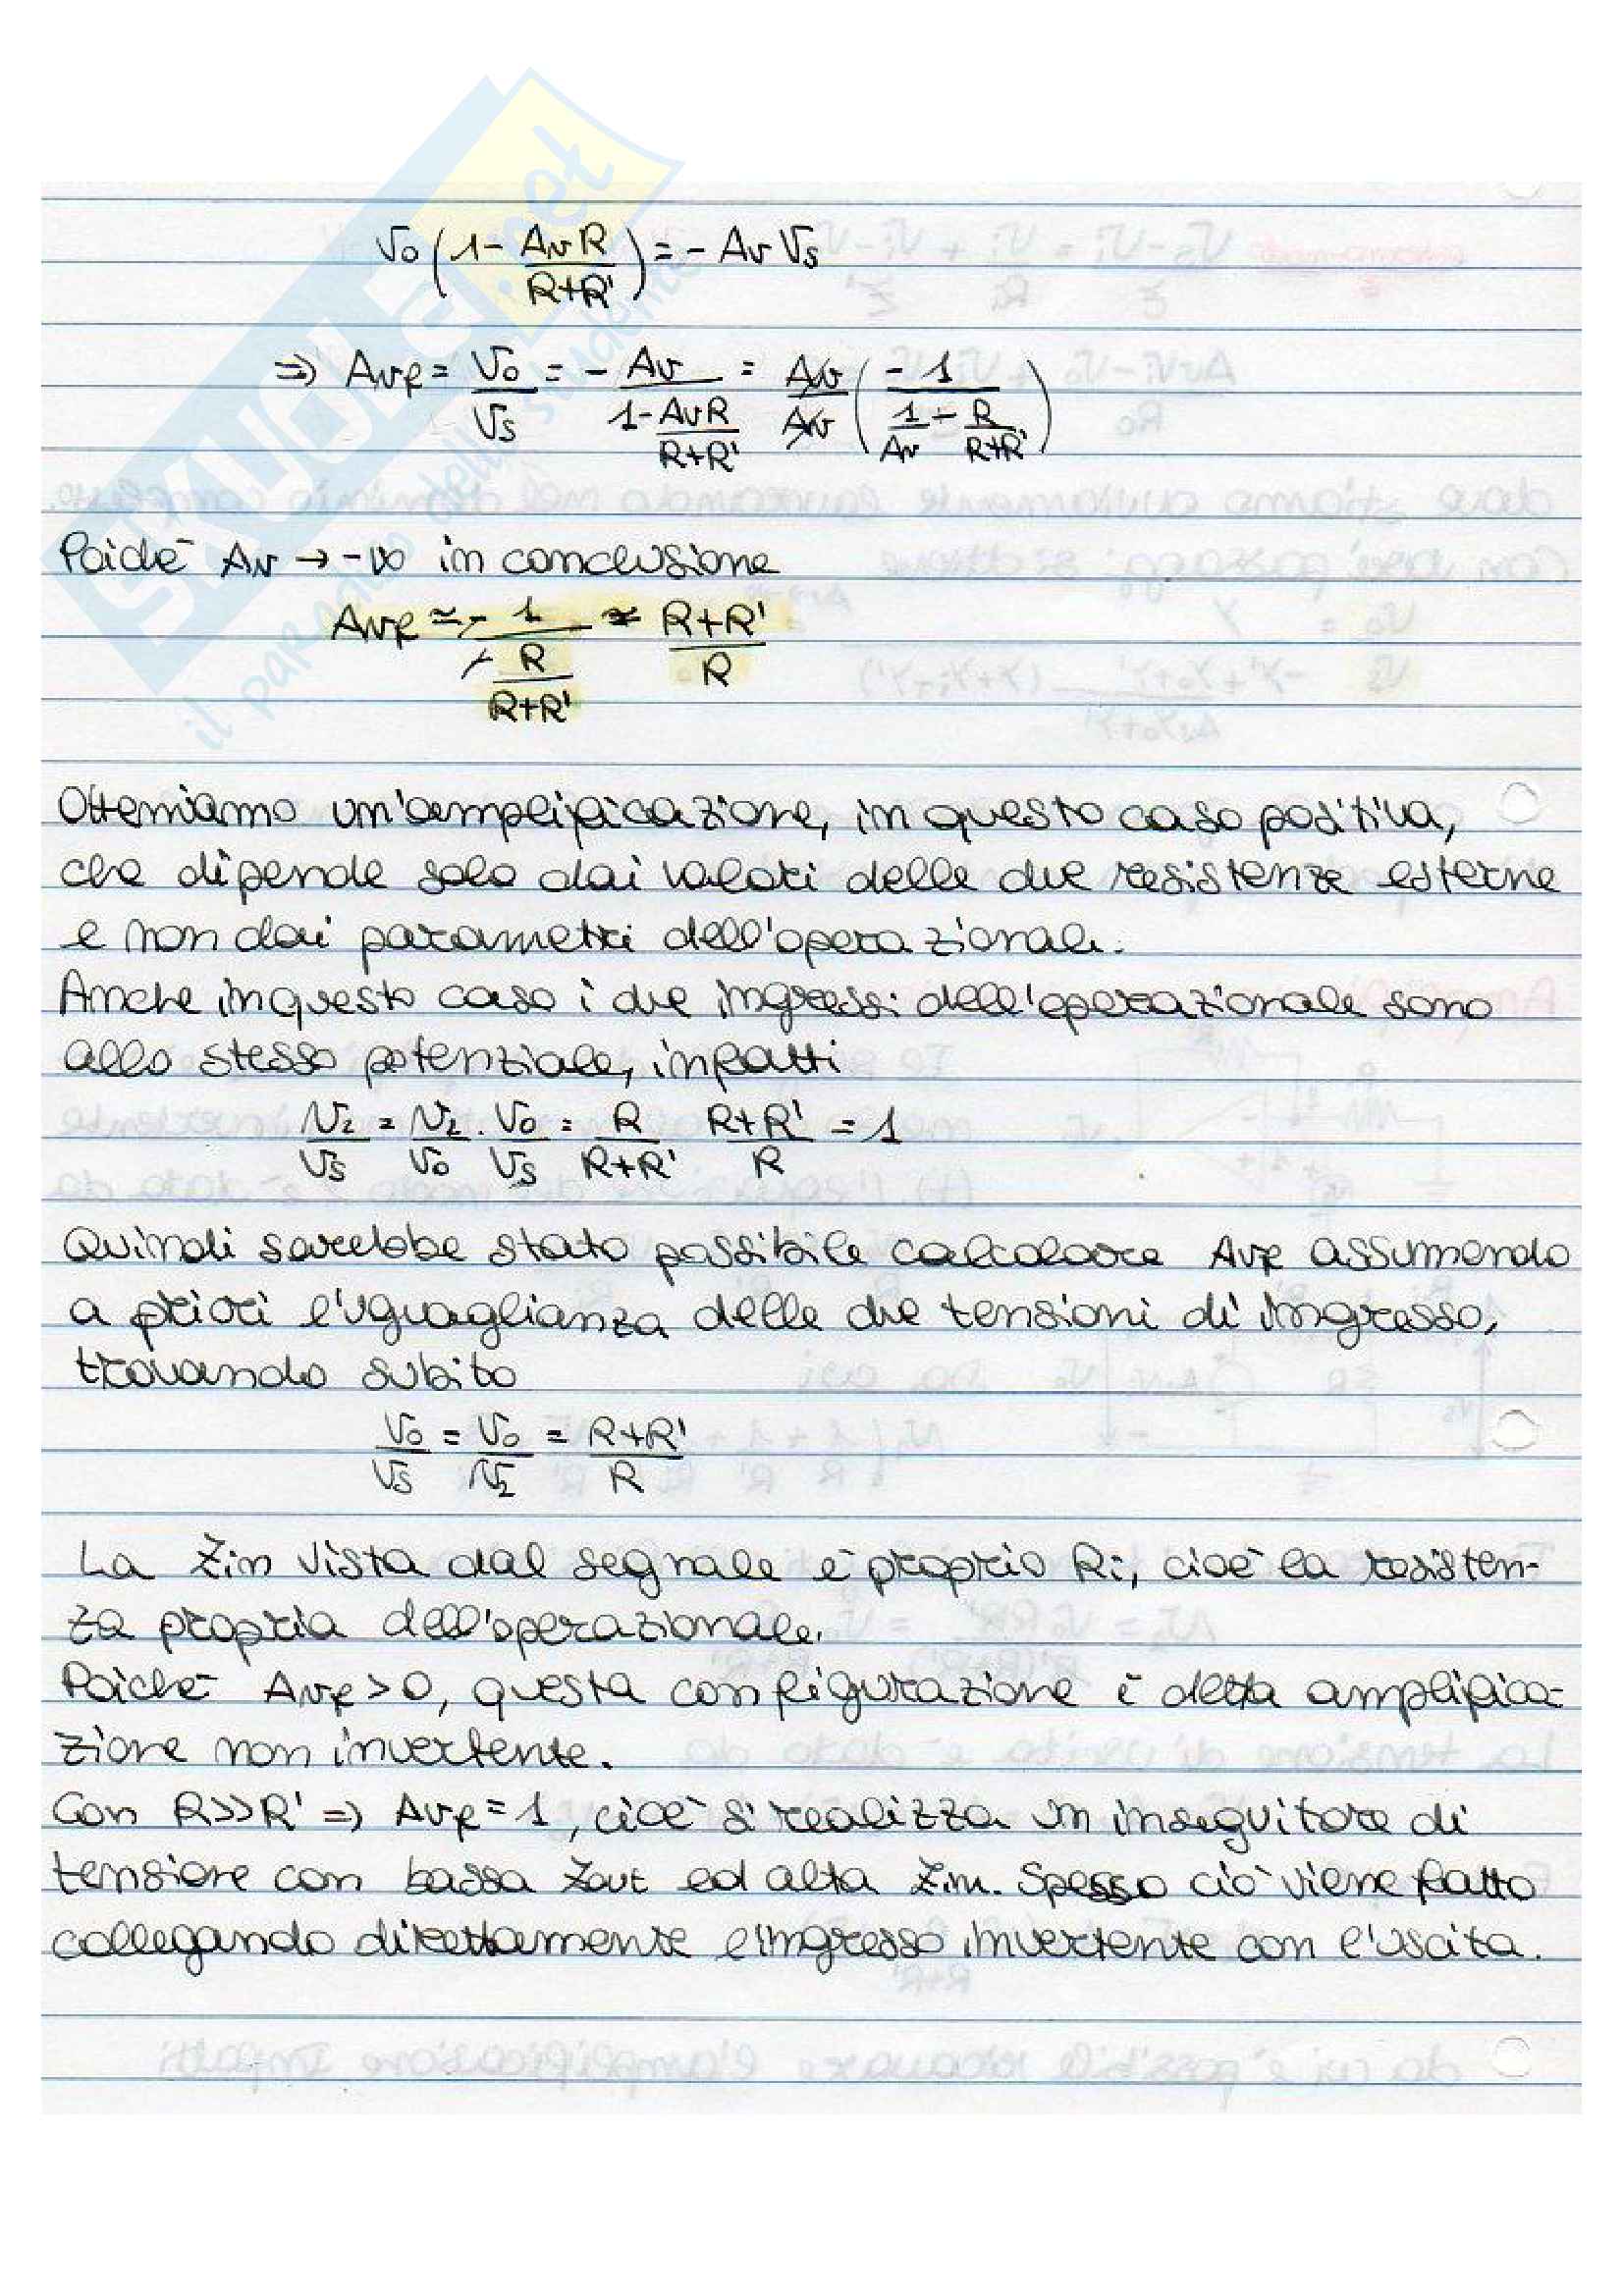 SKUOLA.net
il paradiso dello studente
Vo (1 - AvR/(R+R')) = - Av Vs
=> Avf = Vo/Vs = - Av/(1 - AvR/(R+R')) = Av/Av (-1/(1/Av - R/(R+R')))
Poichè Av → -∞ in conclusione
Avf ≃ - 1/(- R/(R+R')) ≃ (R+R')/R
Otteniamo un'amplificazione, in questo caso positiva,
che dipende solo dai valori delle due resistenze esterne
e non dai parametri dell'operazionale.
Anche in questo caso i due ingressi dell'operazionale sono
allo stesso potenziale, infatti
V2/Vs = V2/Vo · Vo/Vs = R/(R+R') (R+R')/R = 1
Quindi sarebbe stato possibile calcolare Avf assumendo
a priori l'uguaglianza delle due tensioni di ingresso,
trovando subito
Vo/Vs = Vo/V2 = (R+R')/R
La Zin vista dal segnale è proprio Ri, cioè la resisten-
za propria dell'operazionale.
Poichè Avf > 0, questa configurazione è detta amplifica-
zione non invertente.
Con R>>R' => Avf = 1, cioè si realizza un inseguitore di
tensione con bassa Zout ed alta Zin. Spesso ciò viene fatto
collegando direttamente l'ingresso invertente con l'uscita.